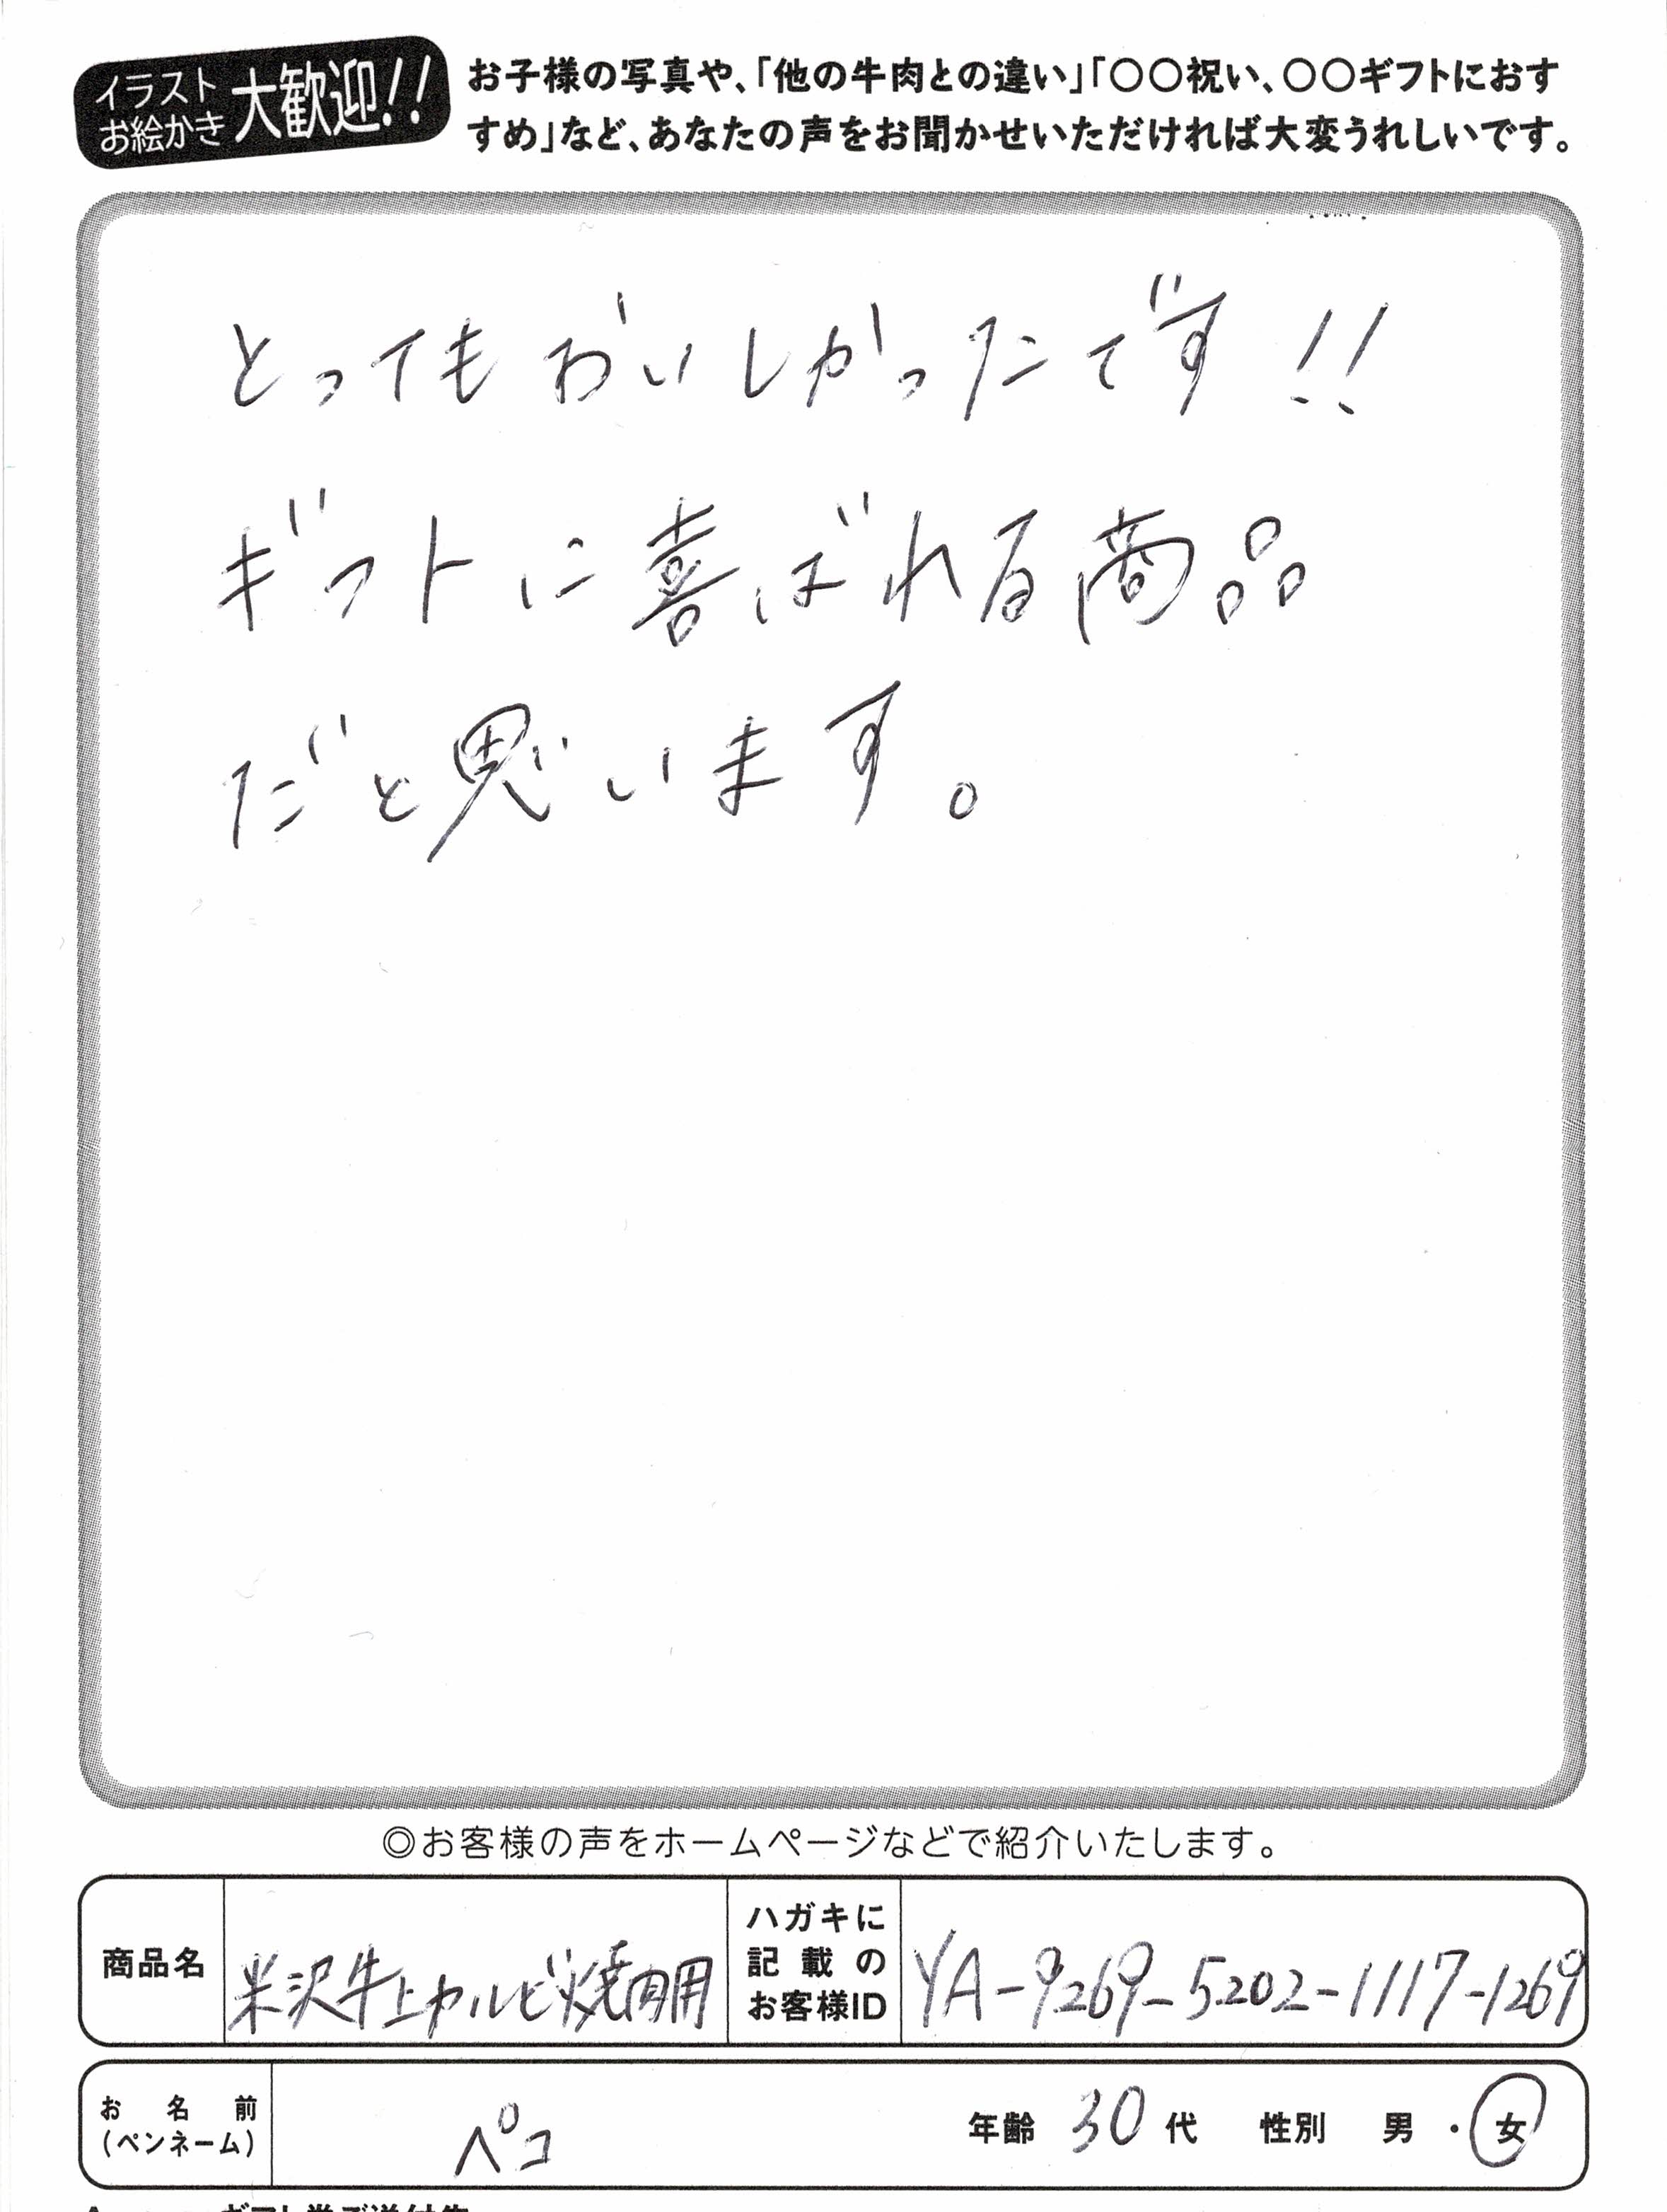 イラスト
お絵かき
大歓迎!!
お子様の写真や、「他の牛肉との違い」「〇〇祝い、〇〇ギフトにおす
すめ」など、あなたの声をお聞かせいただければ大変うれしいです。
とってもおいしかったです!!
ギフトに喜ばれる商品
だと思います。
◎お客様の声をホームページなどで紹介いたします。
商品名
米沢牛上カルビ焼肉用
ハガキに
記載の
お客様ID
YA-9269-5202-1117-1269
お名前
(ペンネーム)
ペコ
年齢 30代 性別 男・女